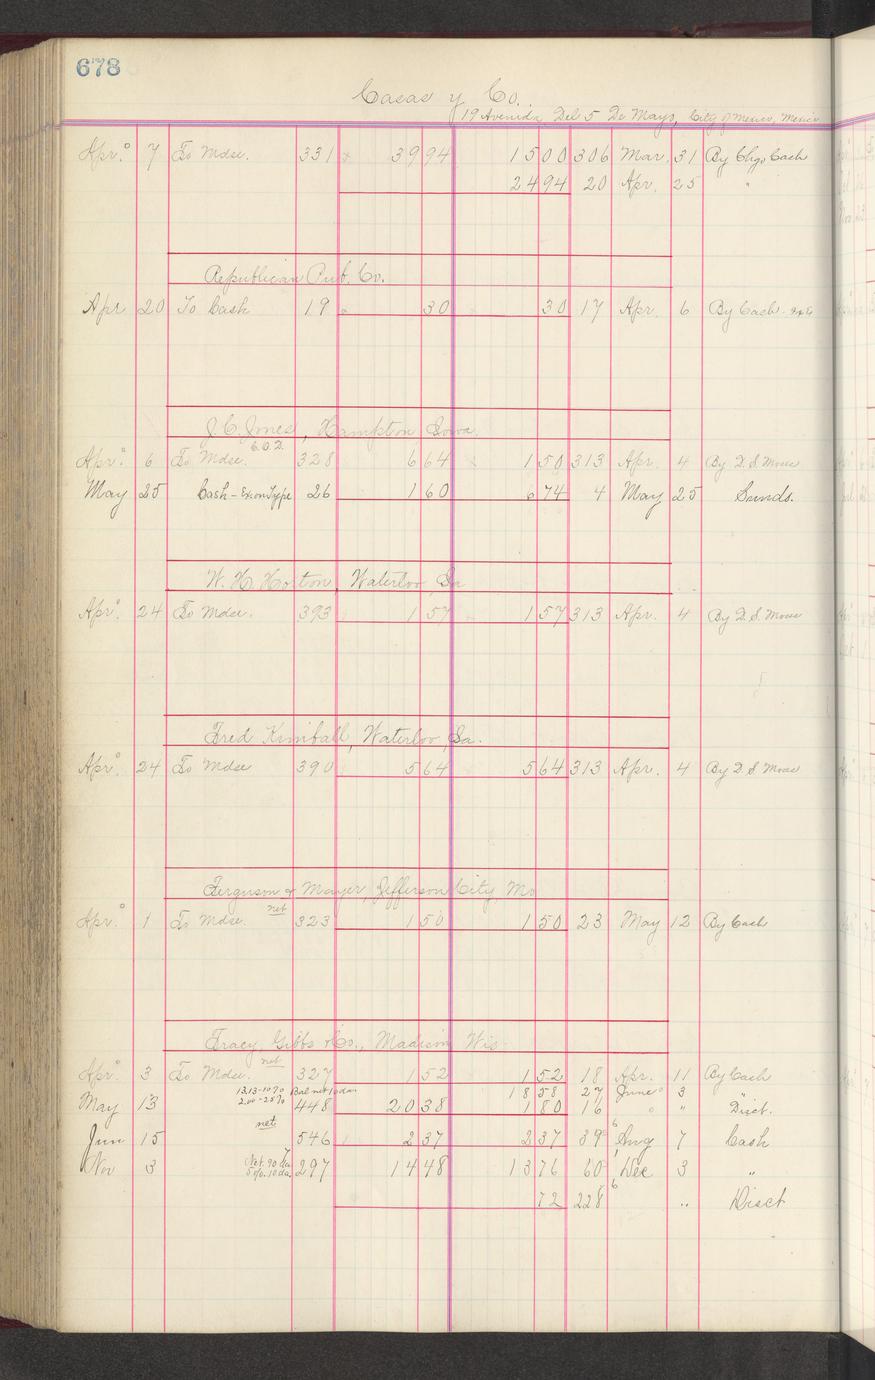 678
Casas y Co.
19 Avenida Del 5 De Mayo, City of Mexico, Mexico
Apr. 7 To Mdse. 331 39 94 15 00 306 Mar. 31 By Chgo Cash
24 94 20 Apr. 25 "
Republican Pub. Co.
Apr 20 To Cash 19 30 30 17 Apr. 6 By Cash
J. C. Jones, Hampton Iowa.
C.O.D.
Apr. 6 To Mdse. 328 6 64 1 50 313 Apr. 4 By D. S. Morse
May 25 Cash - Ex on Type 26 1 60 6 74 4 May 25 Sunds.
W. H. Horton, Waterloo, Ia
Apr. 24 To Mdse. 393 1 57 1 57 313 Apr. 4 By D. S. Morse
Fred Kimball, Waterloo, Ia.
Apr. 24 To Mdse 390 5 64 5 64 313 Apr. 4 By D. S. Morse
Ferguson & Mayer, Jefferson City, Mo
net
Apr. 1 To Mdse. 323 1 50 1 50 23 May 12 By Cash
Tracy, Gibbs & Co., Madison Wis.
net
Apr. 3 To Mdse. 327 1 52 1 52 18 Apr. 11 By Cash
13.13-10% Bal net 10 da 18 58 27 June 3 "
May 13 2.00-25% 448 20 38 1 80 16 " " Disct.
net
Jun 15 546 2 37 2 37 39 Aug 7 Cash
Nov 3 Net 30 da 5% 10 da. 297 14 48 13 76 60 Dec 3 "
72 228 " Disct